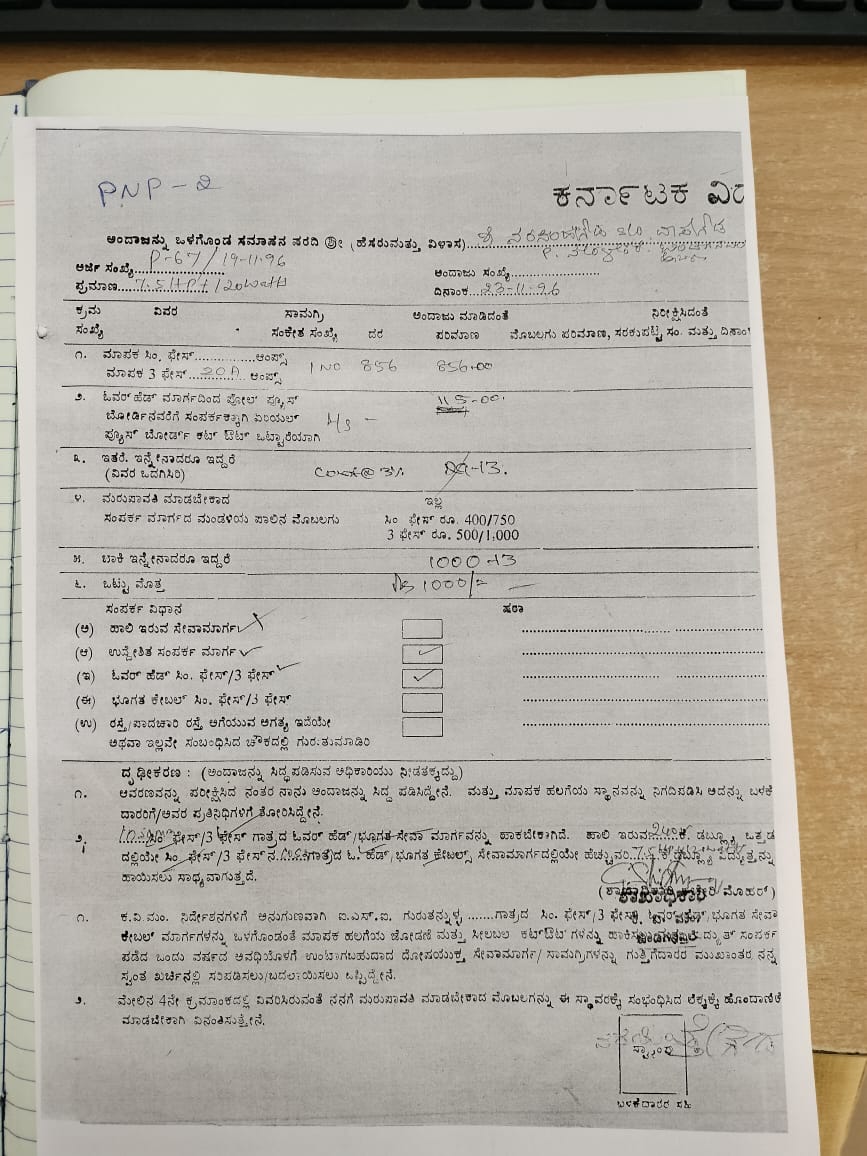 PNP - 2
ಕರ್ನಾಟಕ ವಿದ
ಅಂದಾಜನ್ನು ಒಳಗೊಂಡ ಸಮಾಹನ ವರದಿ ಶ್ರೀ (ಹೆಸರುಮತ್ತು ವಿಳಾಸ)
ಅರ್ಜಿ ಸಂಖ್ಯೆ P-67/19-11-96 ಅಂದಾಜು ಸಂಖ್ಯೆ
ಪ್ರಮಾಣ 7.5 HP+120watts ದಿನಾಂಕ 23-11-96
ಕ್ರಮ ವಿವರ ಸಾಮಗ್ರಿ ಅಂದಾಜು ಮಾಡಿದಂತೆ ನಿರೀಕ್ಷಿಸಿದಂತೆ
ಸಂಖ್ಯೆ ಸಂಕೇತ ಸಂಖ್ಯೆ ದರ ಪರಿಮಾಣ ಮೊಬಲಗು ಪರಿಮಾಣ, ಸರಕುಪಟ್ಟಿ ಸಂ. ಮತ್ತು ದಿನಾಂ
೧. ಮಾಪಕ ಸಿಂ. ಫೇಸ್ ಆಂಪ್ಸ್
ಮಾಪಕ 3 ಫೇಸ್ 20A ಆಂಪ್ಸ್ 1 NO 856 856.00
೨. ಓವರ್ ಹೆಡ್ ಮಾರ್ಗದಿಂದ ಪೋಲ್ ಫ್ಯೂಸ್ 115.00
ಬೋರ್ಡಿನವರೆಗೆ ಸಂಪರ್ಕಕ್ಕಾಗಿ ಏರಿಯಲ್
ಫ್ಯೂಸ್ ಬೋರ್ಡ್ ಕಟ್ ಔಟ್ ಒಟ್ಟಾರೆಯಾಗಿ
೩. ಇತರೆ. ಇನ್ನೇನಾದರೂ ಇದ್ದರೆ
(ವಿವರ ಒದಗಿಸಿರಿ) @ 3% 29-13.
೪. ಮರುಪಾವತಿ ಮಾಡಬೇಕಾದ ಇಲ್ಲ
ಸಂಪರ್ಕ ಮಾರ್ಗದ ಮಂಡಳಿಯ ಪಾಲಿನ ಮೊಬಲಗು ಸಿಂ ಫೇಸ್ ರೂ. 400/750
3 ಫೇಸ್ ರೂ. 500/1,000
೫. ಬಾಕಿ ಇನ್ನೇನಾದರೂ ಇದ್ದರೆ 1000-13
೬. ಒಟ್ಟು ಮೊತ್ತ Rs 1000/=
ಸಂಪರ್ಕ ವಿಧಾನ ಷರಾ
(ಅ) ಹಾಲಿ ಇರುವ ಸೇವಾಮಾರ್ಗ
(ಆ) ಉದ್ದೇಶಿತ ಸಂಪರ್ಕ ಮಾರ್ಗ
(ಇ) ಓವರ್ ಹೆಡ್ ಸಿಂ. ಫೇಸ್/3 ಫೇಸ್
(ಈ) ಭೂಗತ ಕೇಬಲ್ ಸಿಂ. ಫೇಸ್/3 ಫೇಸ್
(ಉ) ರಸ್ತೆ/ಪಾದಚಾರಿ ರಸ್ತೆ ಅಗೆಯುವ ಅಗತ್ಯ ಇದೆಯೇ
ಅಥವಾ ಇಲ್ಲವೇ ಸಂಬಂಧಿಸಿದ ಚೌಕದಲ್ಲಿ ಗುರುತುಮಾಡಿರಿ
ದೃಢೀಕರಣ : (ಅಂದಾಜನ್ನು ಸಿದ್ಧಪಡಿಸುವ ಅಧಿಕಾರಿಯು ನೀಡತಕ್ಕದ್ದು)
೧. ಆವರಣವನ್ನು ಪರೀಕ್ಷಿಸಿದ ನಂತರ ನಾನು ಅಂದಾಜನ್ನು ಸಿದ್ಧ ಪಡಿಸಿದ್ದೇನೆ. ಮತ್ತು ಮಾಪಕ ಹಲಗೆಯ ಸ್ಥಾನವನ್ನು ನಿಗದಿಪಡಿಸಿ ಅದನ್ನು ಬಳಕೆ
ದಾರರಿಗೆ/ಅವರ ಪ್ರತಿನಿಧಿಗಳಿಗೆ ತೋರಿಸಿದ್ದೇನೆ.
೨. ಸಿಂ ಫೇಸ್/3 ಫೇಸ್ ಗಾತ್ರದ ಓವರ್ ಹೆಡ್/ಭೂಗತ ಸೇವಾ ಮಾರ್ಗವನ್ನು ಹಾಕಬೇಕಾಗಿದೆ. ಹಾಲಿ ಇರುವ ಕೆ. ಡಬ್ಲ್ಯೂ ಒತ್ತಡ
ದಲ್ಲಿಯೇ ಸಿಂ. ಫೇಸ್/3 ಫೇಸ್ ನ ಗಾತ್ರದ ಓ. ಹೆಡ್/ಭೂಗತ ಕೇಬಲ್ಸ್ ಸೇವಾಮಾರ್ಗದಲ್ಲಿಯೇ ಹೆಚ್ಚುವರಿ 7.5 ಕೆ ಡಬ್ಲ್ಯೂ ವಿದ್ಯುತ್ತನ್ನು
ಹಾಯಿಸಲು ಸಾಧ್ಯವಾಗುತ್ತದೆ.
ಮೊಹರ್)
ಶಾಖಾಧಿಕಾರಿ
೧. ಕ.ವಿ.ಮಂ. ನಿರ್ದೇಶನಗಳಿಗೆ ಅನುಗುಣವಾಗಿ ಐ.ಎಸ್.ಐ. ಗುರುತನ್ನುಳ್ಳ .......ಗಾತ್ರದ ಸಿಂ. ಫೇಸ್/3 ಫೇಸ್ ಓವರ್ ಹೆಡ್/ಭೂಗತ ಸೇವಾ
ಕೇಬಲ್ ಮಾರ್ಗಗಳನ್ನು ಒಳಗೊಂಡಂತೆ ಮಾಪಕ ಹಲಗೆಯ ಜೋಡಣೆ ಮತ್ತು ಸೀಲಬಲ ಕಟ್ಔಟ್ ಗಳನ್ನು ಹಾಕಿಸಲು ಸಂಪರ್ಕ
ಪಡೆದ ಒಂದು ವರ್ಷದ ಅವಧಿಯೊಳಗೆ ಉಂಟಾಗಬಹುದಾದ ದೋಷಯುಕ್ತ ಸೇವಾಮಾರ್ಗ/ ಸಾಮಗ್ರಿಗಳನ್ನು ಗುತ್ತಿಗೆದಾರರ ಮುಖಾಂತರ ನನ್ನ
ಸ್ವಂತ ಖರ್ಚಿನಲ್ಲಿ ಸರಿಪಡಿಸಲು/ಬದಲಾಯಿಸಲು ಒಪ್ಪಿದ್ದೇನೆ.
೨. ಮೇಲಿನ 4ನೇ ಕ್ರಮಾಂಕದಲ್ಲಿ ವಿವರಿಸಿರುವಂತೆ ನನಗೆ ಮರುಪಾವತಿ ಮಾಡಬೇಕಾದ ಮೊಬಲಗನ್ನು ಈ ಸ್ಥಾವರಕ್ಕೆ ಸಂಭಂಧಿಸಿದ ಲೆಕ್ಕಕ್ಕೆ ಹೊಂದಾಣಿಕೆ
ಮಾಡಬೇಕಾಗಿ ವಿನಂತಿಸುತ್ತೇನೆ.
ಸ್ಟ್ಯಾಂಪು
ಬಳಕೆದಾರರ ಸಹಿ